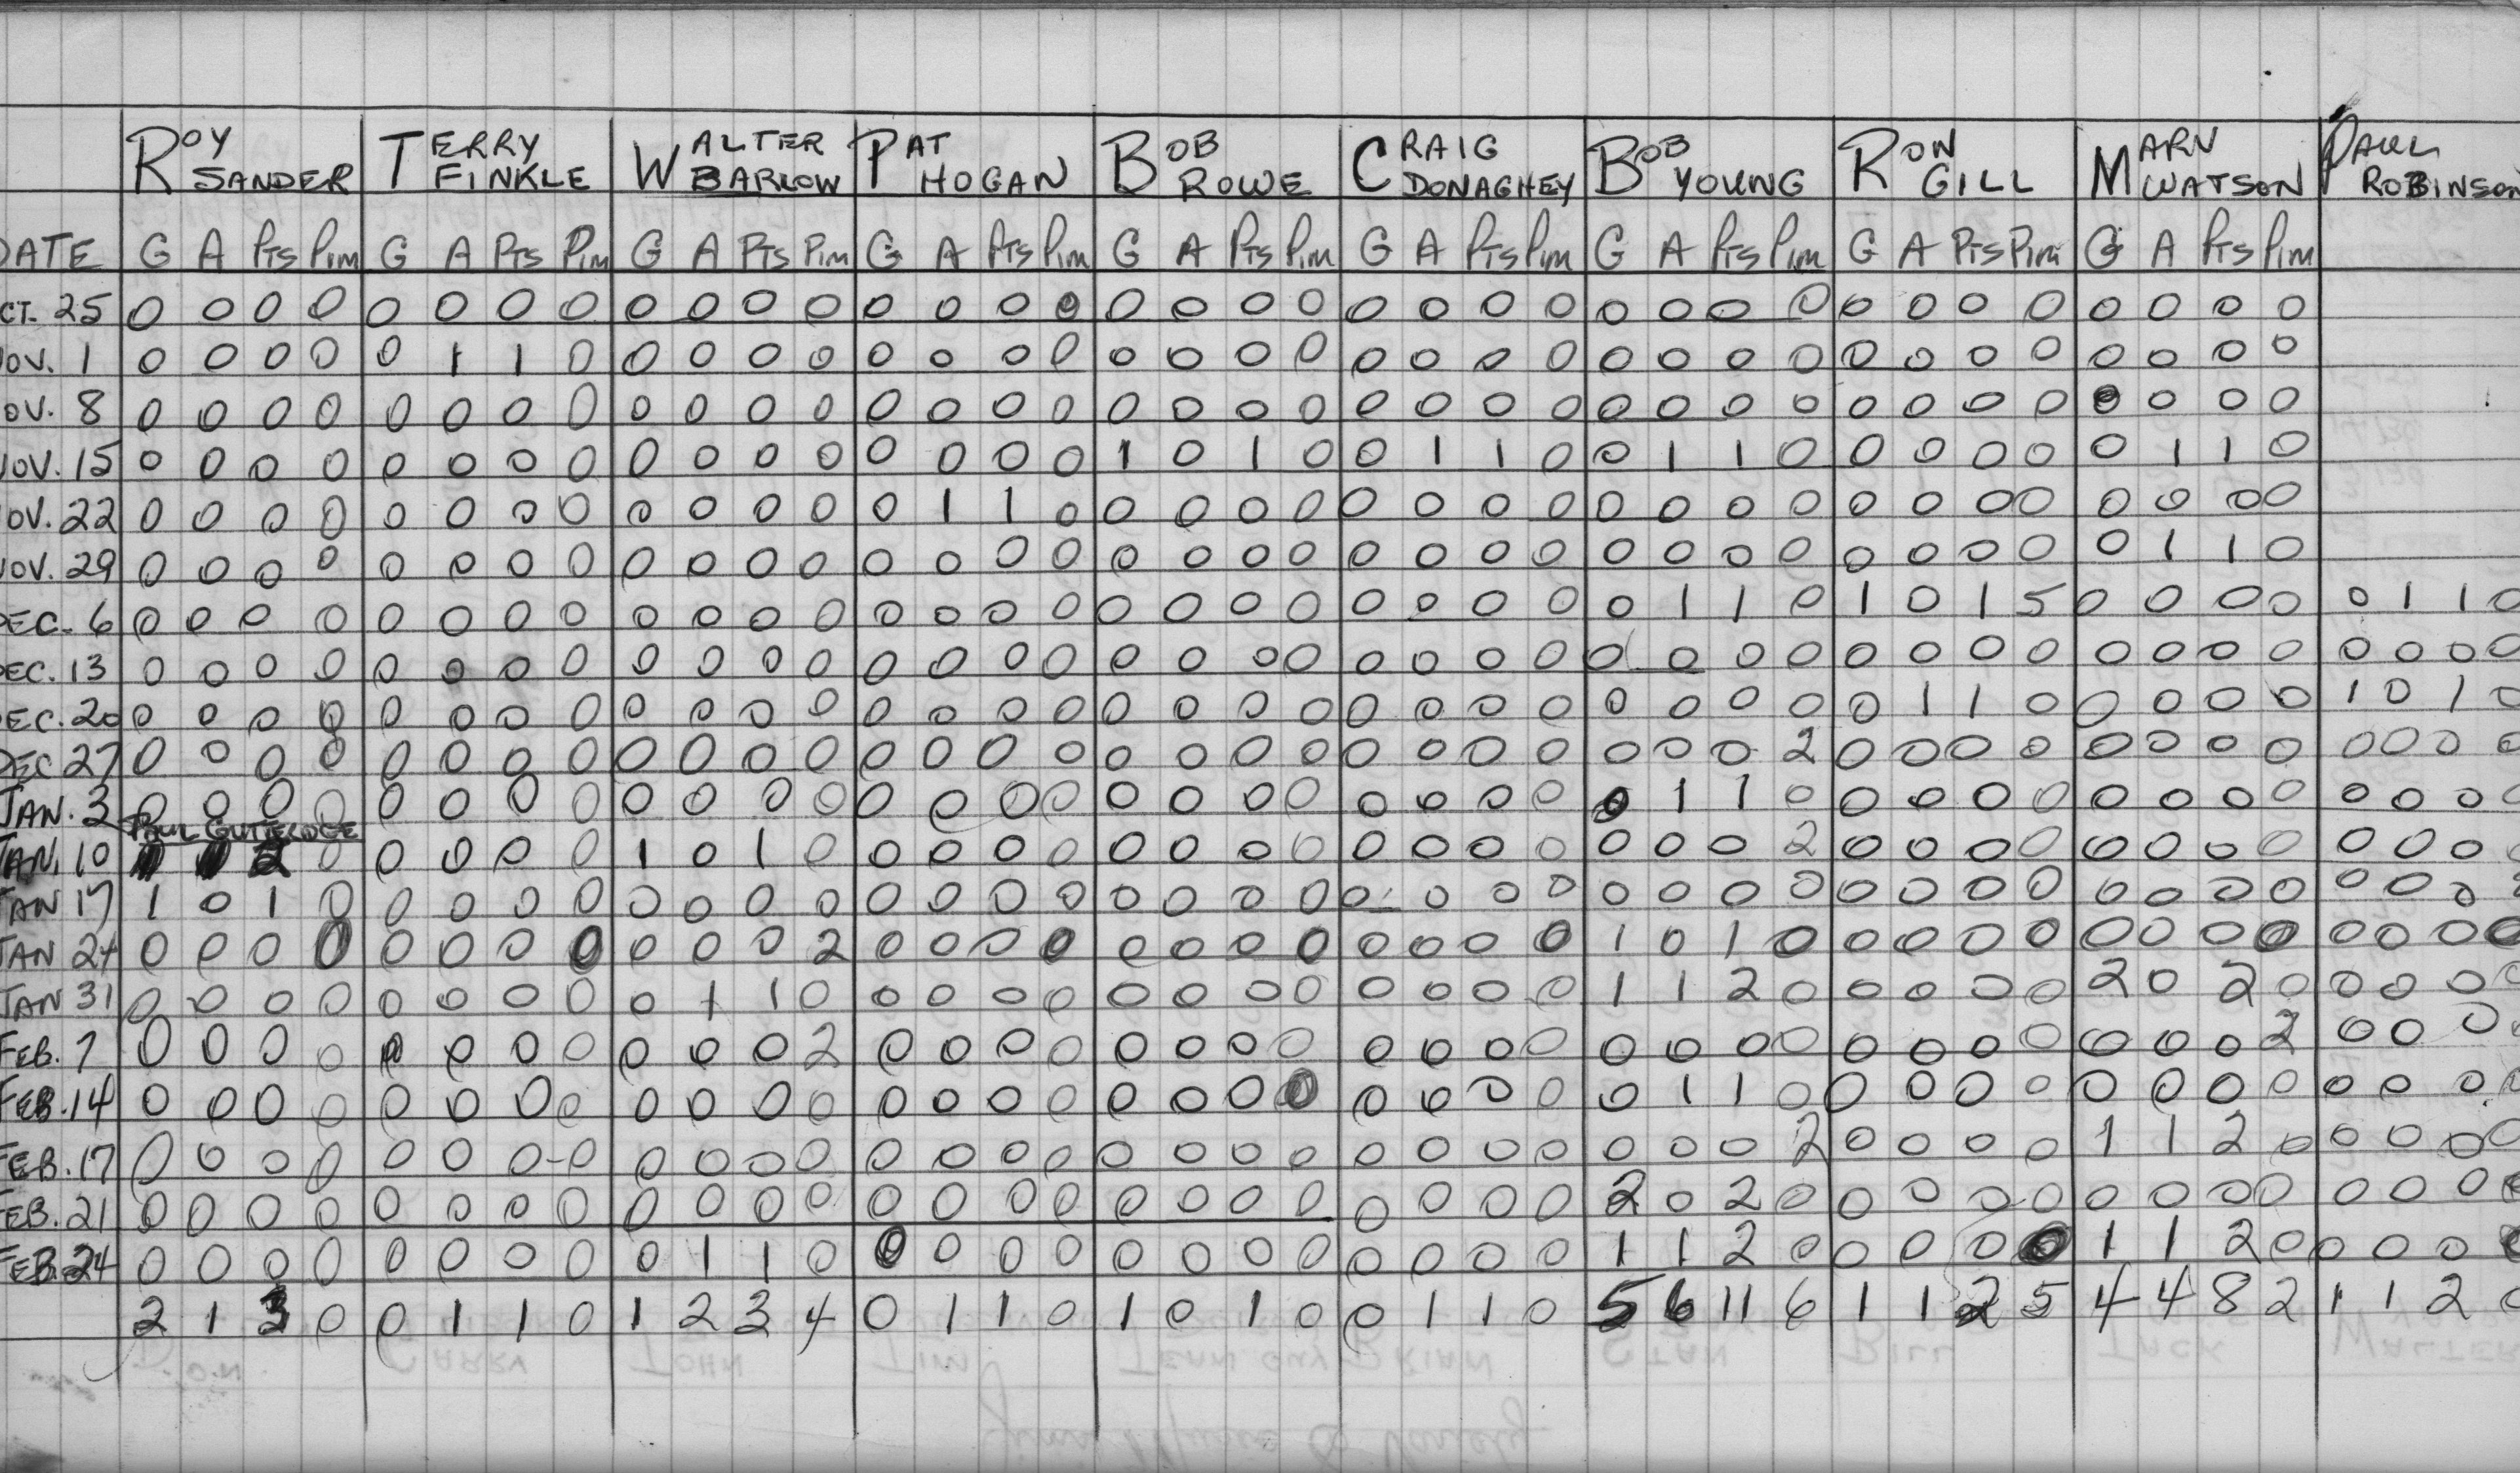 ROY SANDER TERRY FINKLE WALTER BARLOW PAT HOGAN BOB ROWE CRAIG DONAGHEY BOB YOUNG RON GILL MARV WATSON PAUL ROBINSON
DATE G A Pts Pim G A Pts Pim G A Pts Pim G A Pts Pim G A Pts Pim G A Pts Pim G A Pts Pim G A Pts Pim G A Pts Pim
CT. 25 0 0 0 0 0 0 0 0 0 0 0 0 0 0 0 0 0 0 0 0 0 0 0 0 0 0 0 0 0 0 0 0 0 0 0 0
OV. 1 0 0 0 0 0 1 1 0 0 0 0 0 0 0 0 0 0 0 0 0 0 0 0 0 0 0 0 0 0 0 0 0 0 0 0 0
OV. 8 0 0 0 0 0 0 0 0 0 0 0 0 0 0 0 0 0 0 0 0 0 0 0 0 0 0 0 0 0 0 0 0 0 0 0 0
OV. 15 0 0 0 0 0 0 0 0 0 0 0 0 0 0 0 0 1 0 1 0 0 1 1 0 0 1 1 0 0 0 0 0 0 1 1 0
OV. 22 0 0 0 0 0 0 0 0 0 0 0 0 0 1 1 0 0 0 0 0 0 0 0 0 0 0 0 0 0 0 0 0 0 0 0 0
OV. 29 0 0 0 0 0 0 0 0 0 0 0 0 0 0 0 0 0 0 0 0 0 0 0 0 0 0 0 0 0 0 0 0 0 1 1 0
DEC. 6 0 0 0 0 0 0 0 0 0 0 0 0 0 0 0 0 0 0 0 0 0 0 0 0 0 1 1 0 1 0 1 5 0 0 0 0 0 1 1 0
DEC. 13 0 0 0 0 0 0 0 0 0 0 0 0 0 0 0 0 0 0 0 0 0 0 0 0 0 0 0 0 0 0 0 0 0 0 0 0 0 0 0 0
DEC. 20 0 0 0 0 0 0 0 0 0 0 0 0 0 0 0 0 0 0 0 0 0 0 0 0 0 0 0 0 0 1 1 0 0 0 0 0 1 0 1 0
DEC 27 0 0 0 0 0 0 0 0 0 0 0 0 0 0 0 0 0 0 0 0 0 0 0 0 0 0 0 2 0 0 0 0 0 0 0 0 0 0 0 0
JAN. 3 0 0 0 0 0 0 0 0 0 0 0 0 0 0 0 0 0 0 0 0 0 0 0 0 0 1 1 0 0 0 0 0 0 0 0 0 0 0 0 0
PAUL
JAN. 10 2 0 0 0 0 0 1 0 1 0 0 0 0 0 0 0 0 0 0 0 0 0 0 0 0 2 0 0 0 0 0 0 0 0 0 0 0
JAN 17 1 0 1 0 0 0 0 0 0 0 0 0 0 0 0 0 0 0 0 0 0 0 0 0 0 0 0 0 0 0 0 0 0 0 0 0 0 0 0
JAN 24 0 0 0 0 0 0 0 0 0 0 0 2 0 0 0 0 0 0 0 0 0 0 0 0 1 0 1 0 0 0 0 0 0 0 0 0 0 0 0 0
JAN 31 0 0 0 0 0 0 0 0 0 1 1 0 0 0 0 0 0 0 0 0 0 0 0 0 1 1 2 0 0 0 0 0 2 0 2 0 0 0 0 0
FEB. 7 0 0 0 0 0 0 0 0 0 0 0 2 0 0 0 0 0 0 0 0 0 0 0 0 0 0 0 0 0 0 0 0 0 0 0 2 0 0 0 0
FEB. 14 0 0 0 0 0 0 0 0 0 0 0 0 0 0 0 0 0 0 0 0 0 0 0 0 0 1 1 0 0 0 0 0 0 0 0 0 0 0 0 0
FEB. 17 0 0 0 0 0 0 0 0 0 0 0 0 0 0 0 0 0 0 0 0 0 0 0 0 0 0 0 2 0 0 0 0 1 1 2 0 0 0 0 0
FEB. 21 0 0 0 0 0 0 0 0 0 0 0 0 0 0 0 0 0 0 0 0 0 0 0 0 2 0 2 0 0 0 0 0 0 0 0 0 0 0 0 0
FEB. 24 0 0 0 0 0 0 0 0 0 1 1 0 0 0 0 0 0 0 0 0 0 0 0 0 1 1 2 0 0 0 0 0 1 1 2 0 0 0 0 0
2 1 3 0 0 1 1 0 1 2 3 4 0 1 1 0 1 0 1 0 0 1 1 0 5 6 11 6 1 1 2 5 4 4 8 2 1 1 2 0